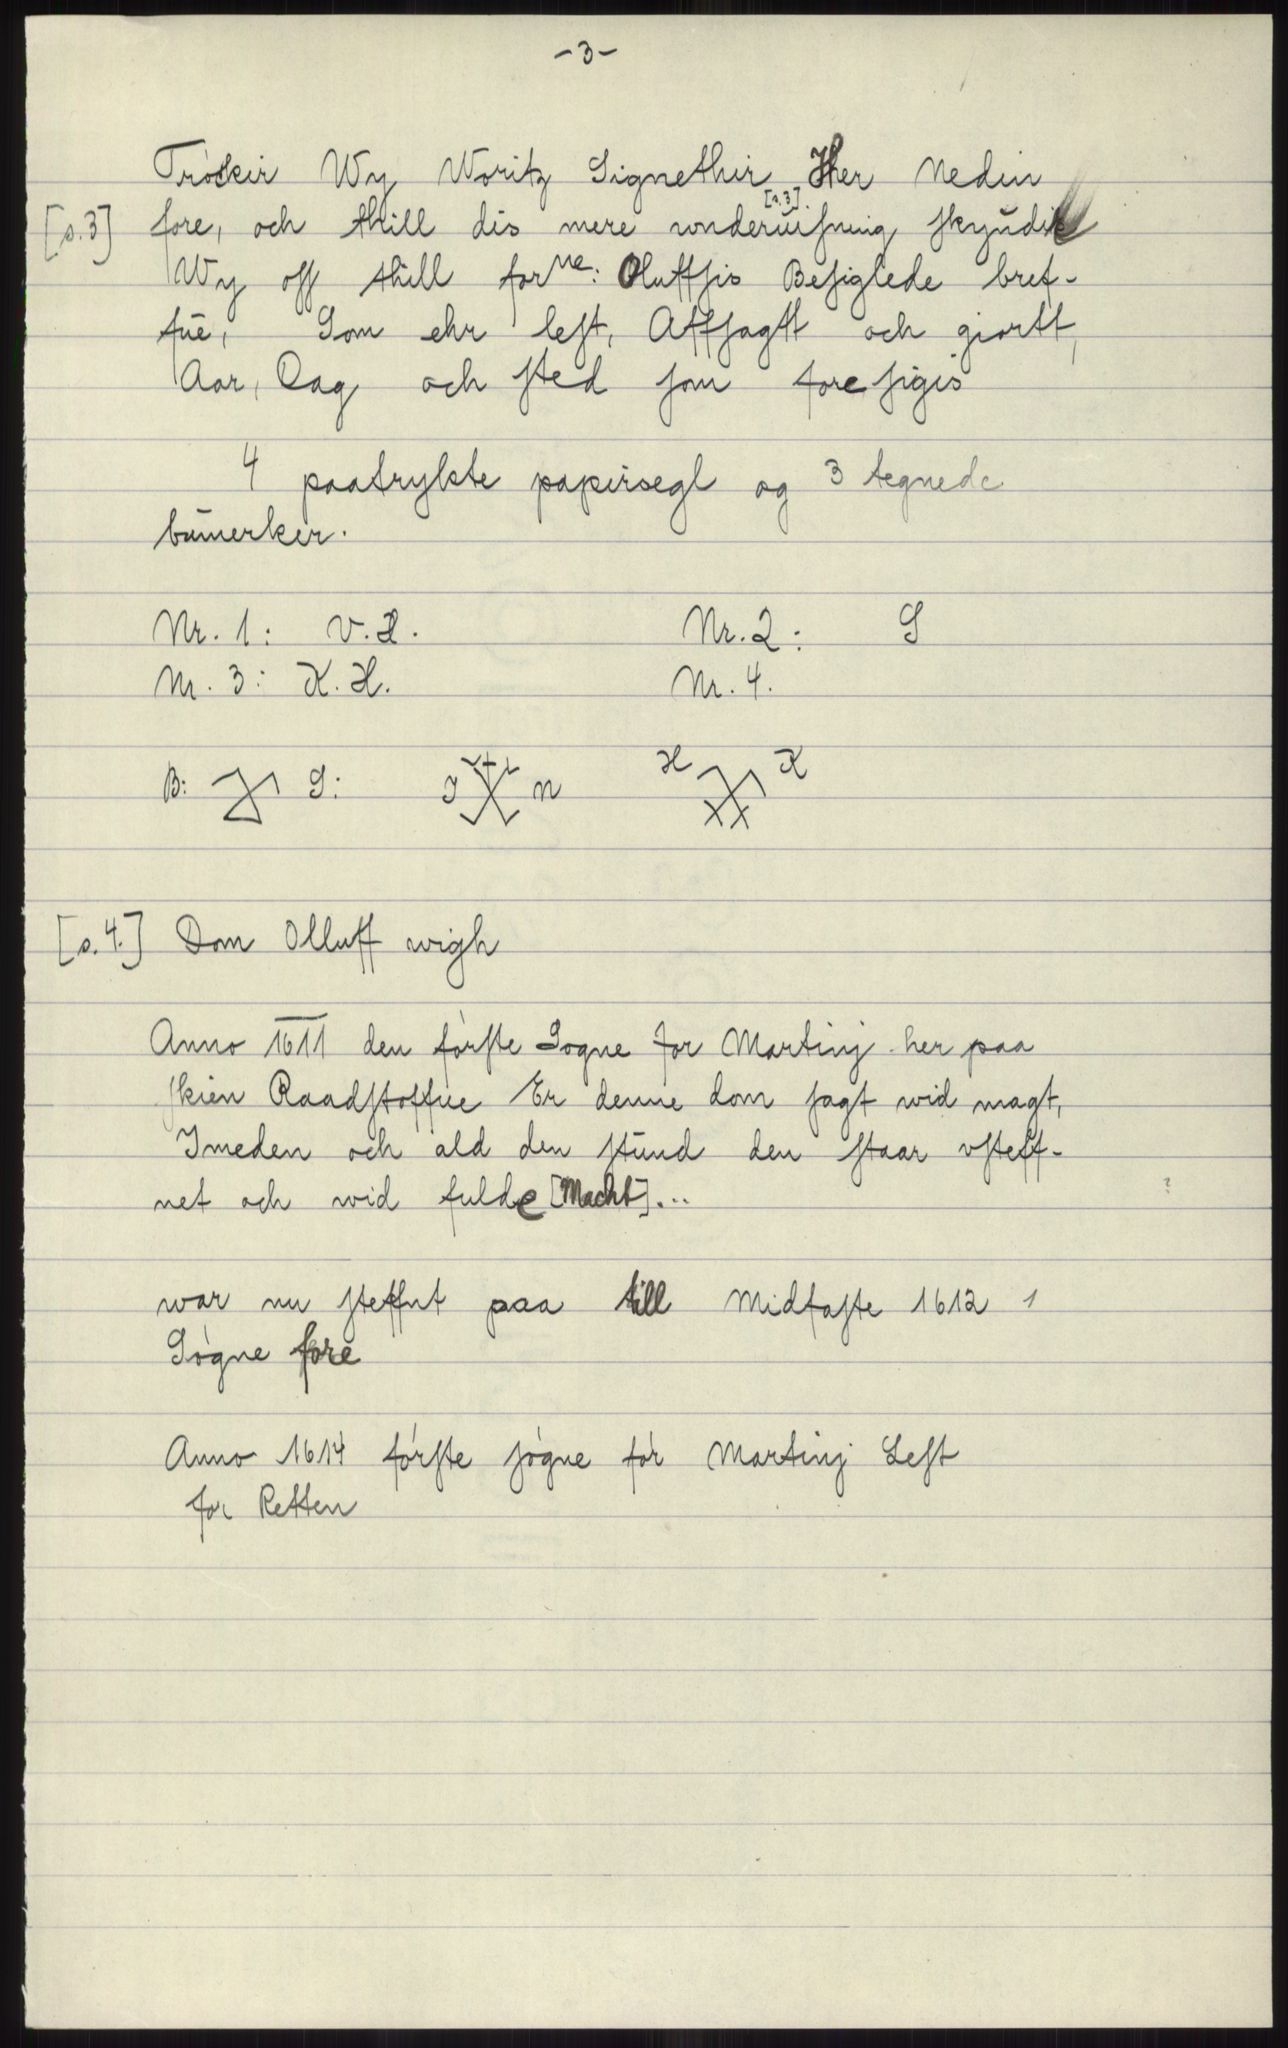 -3-
Tröckir Wy Woritz Signethir Her Nedin
[s.3] fore, och thill dis mere wnderuisning skyndit
[s.3]
Wy oss thill forne: Oluffsis Besiglede bref-
fue, Som ehr lest, Affsagtt och giortt,
Aar, Dag och sted som foresigis
4 paatrykte papirsegl og 3 tegnede
bumerker.
Nr. 1: V.H. Nr. 2: S
Nr. 3: K.H. Nr. 4.
B: S: I N H K
[s.4.] Dom Olluff wigh
Anno 1611 den förste Sogne for Martinj her paa
skien Raadstoffue Er denne dom sagt wid magt,
Imeden och ald den stund den staar vsteff-
net och wid fulde [Macht]...
?
war nu steffnt paa till Midfaste 1612 1
Sögne fore
Anno 1614 förste sögne för Martinj Lest
for Retten